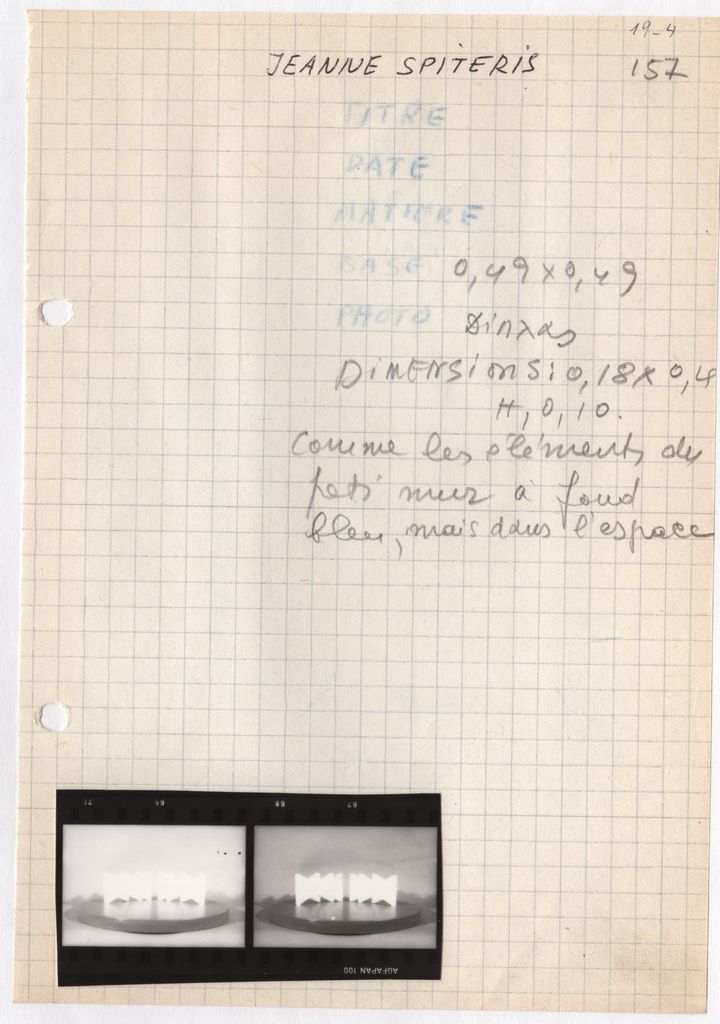 19-4
JEANNE SPITERIS
157
TITRE
DATE
MATIERE
BASE 0,49 x 0,49
PHOTO
DIMENSIONS: 0,18 x 0,4
H, 0,10.
Comme les éléments du
petit mur à fond
bleu, mais dans l'espace
70 69 68 67
AGFAPAN 100